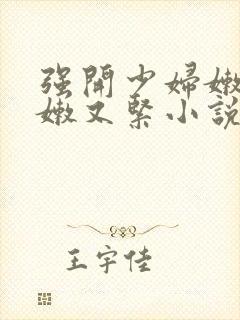 强開少婦嫩
嫩又緊小說
王宇佳